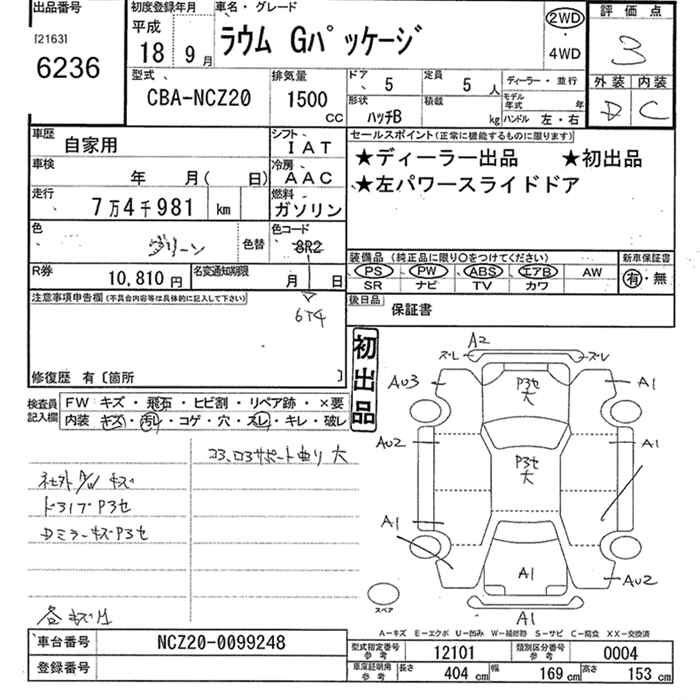 出品番号
[2163]
6236
初度登録年月
平成
18 9月
車名・グレード
ラウム Gパッケージ
2WD
・
4WD
評価点
3
外装 内装
D C
型式
CBA-NCZ20
排気量
1500
CC
ドア
5
定員
5 人
ディーラー・並行
モデル年式 年
形状
ハッチB
積載
kg
ハンドル 左・右
車歴
自家用
シフト
IAT
車検
年 月( 日)
冷房
AAC
走行
7万4千981 km
燃料
ガソリン
セールスポイント(正常に機能するものに限ります)
★ディーラー出品 ★初出品
★左パワースライドドア
色
グリーン
色替
色コード
8R2
6T4
R券
10,810 円
名変通知期限
月 日
装備品 (純正品に限り○をつけてください)
PS PW ABS エアB AW
SR ナビ TV カワ
新車保証書
有・無
後日品
保証書
注意事項申告欄(不具合内容等は具体的に記入して下さい)
修復歴 有〔箇所 〕
初出品
検査員記入欄
FW キズ・飛石・ヒビ割・リペア跡・×要
内装 キズ・汚レ・コゲ・穴・スレ・キレ・破レ
コアS、ロアサポート曲り 大
ドアバイザー P3セ
Dミラーキズ P3セ
各キズ凹
A2
ズレ
ズレ
AU3
P3セ
大
A1
AU2
P3セ
大
A1
A1
A1
AU2
A1
スペア
A-キズ E-エクボ U-凹み W-補修跡 S-サビ C-腐食 XX-交換済
車台番号
NCZ20-0099248
登録番号
型式指定番号
参考
12101
類別区分番号
参考
0004
車庫証明用
参考
長さ
404 cm
幅
169 cm
高さ
153 cm